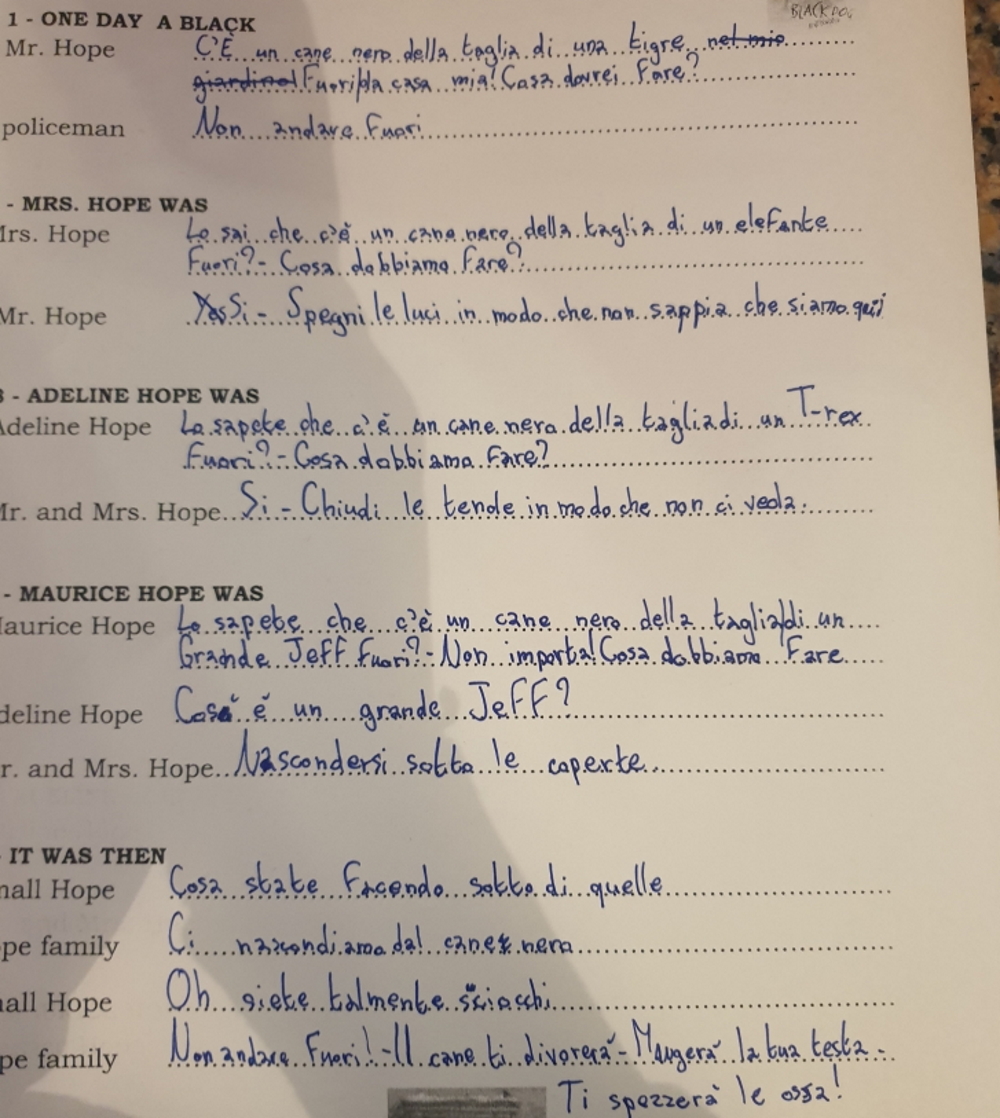 BLACK DOG
1 - ONE DAY A BLACK
Mr. Hope C'È un cane nero della taglia di una tigre nel mio
giardino! Fuori da casa mia! Cosa dovrei fare?
policeman Non andare fuori
- MRS. HOPE WAS
Mrs. Hope Lo sai che c'è un cane nero della taglia di un elefante
fuori? - Cosa dobbiamo fare?
Mr. Hope Yes Si - Spegni le luci in modo che non sappia che siamo qui!
3 - ADELINE HOPE WAS
Adeline Hope Lo sapete che c'è un cane nero della taglia di un T-rex
fuori? - Cosa dobbiamo fare?
Mr. and Mrs. Hope Si - Chiudi le tende in modo che non ci veda.
- MAURICE HOPE WAS
Maurice Hope Lo sapete che c'è un cane nero della taglia di un
Grande Jeff fuori? - Non importa! Cosa dobbiamo fare
deline Hope Cos' è un grande Jeff?
r. and Mrs. Hope Nascondersi sotto le coperte
IT WAS THEN
mall Hope Cosa state facendo sotto di quelle
ope family Ci nascondiamo dal cane nero
mall Hope Oh siete talmente sciocchi
ope family Non andare fuori! - Il cane ti divorerà - Mangerà la tua testa -
Ti spezzerà le ossa!